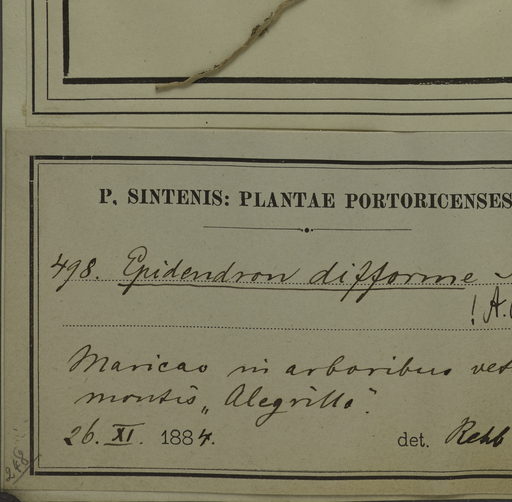 P. SINTENIS: PLANTAE PORTORICENSES
498. Epidendron difforme
! A.
Maricao in arboribus vet
montis „Alegrillo".
26. XI. 1884. det. Rehb
248